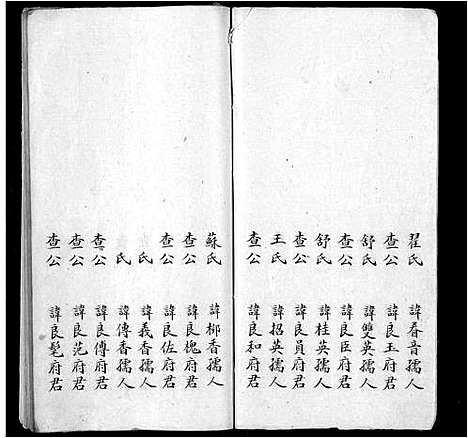 翟氏 諱春音孺人
查公 諱良玉府君
舒氏 諱雙英孺人
查公 諱良臣府君
舒氏 諱桂英孺人
查公 諱良員府君
王氏 諱招英孺人
查公 諱良和府君
蘇氏 諱梆香孺人
查公 諱良槐府君
查公 諱良佐府君
氏 諱義香孺人
氏 諱傳香孺人
查公 諱良傳府君
查公 諱良范府君
查公 諱良髦府君